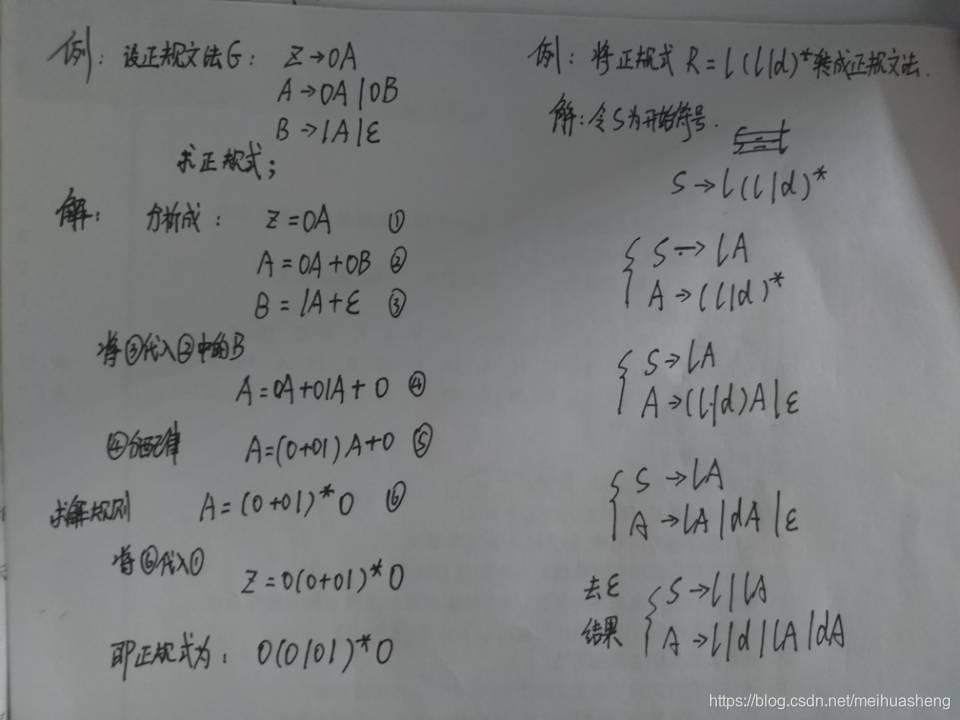 例：设正规文法G： Z→0A
A→0A|0B
B→1A|ε
求正规式；
解： 分析成： Z=0A ①
A=0A+0B ②
B=1A+ε ③
将③代入②中的B
A=0A+01A+0 ④
④分配律 A=(0+01)A+0 ⑤
求解规则 A=(0+01)*0 ⑥
将⑥代入①
Z=0(0+01)*0
即正规式为： 0(0|01)*0
例：将正规式 R=l(l|d)*转成正规文法.
解：令S为开始符号.
S→l(l|d)*
S→lA
A→(l|d)*
S→lA
A→(l|d)A|ε
S→lA
A→lA|dA|ε
去ε S→l|lA
结果 A→l|d|lA|dA
https://blog.csdn.net/meihuasheng